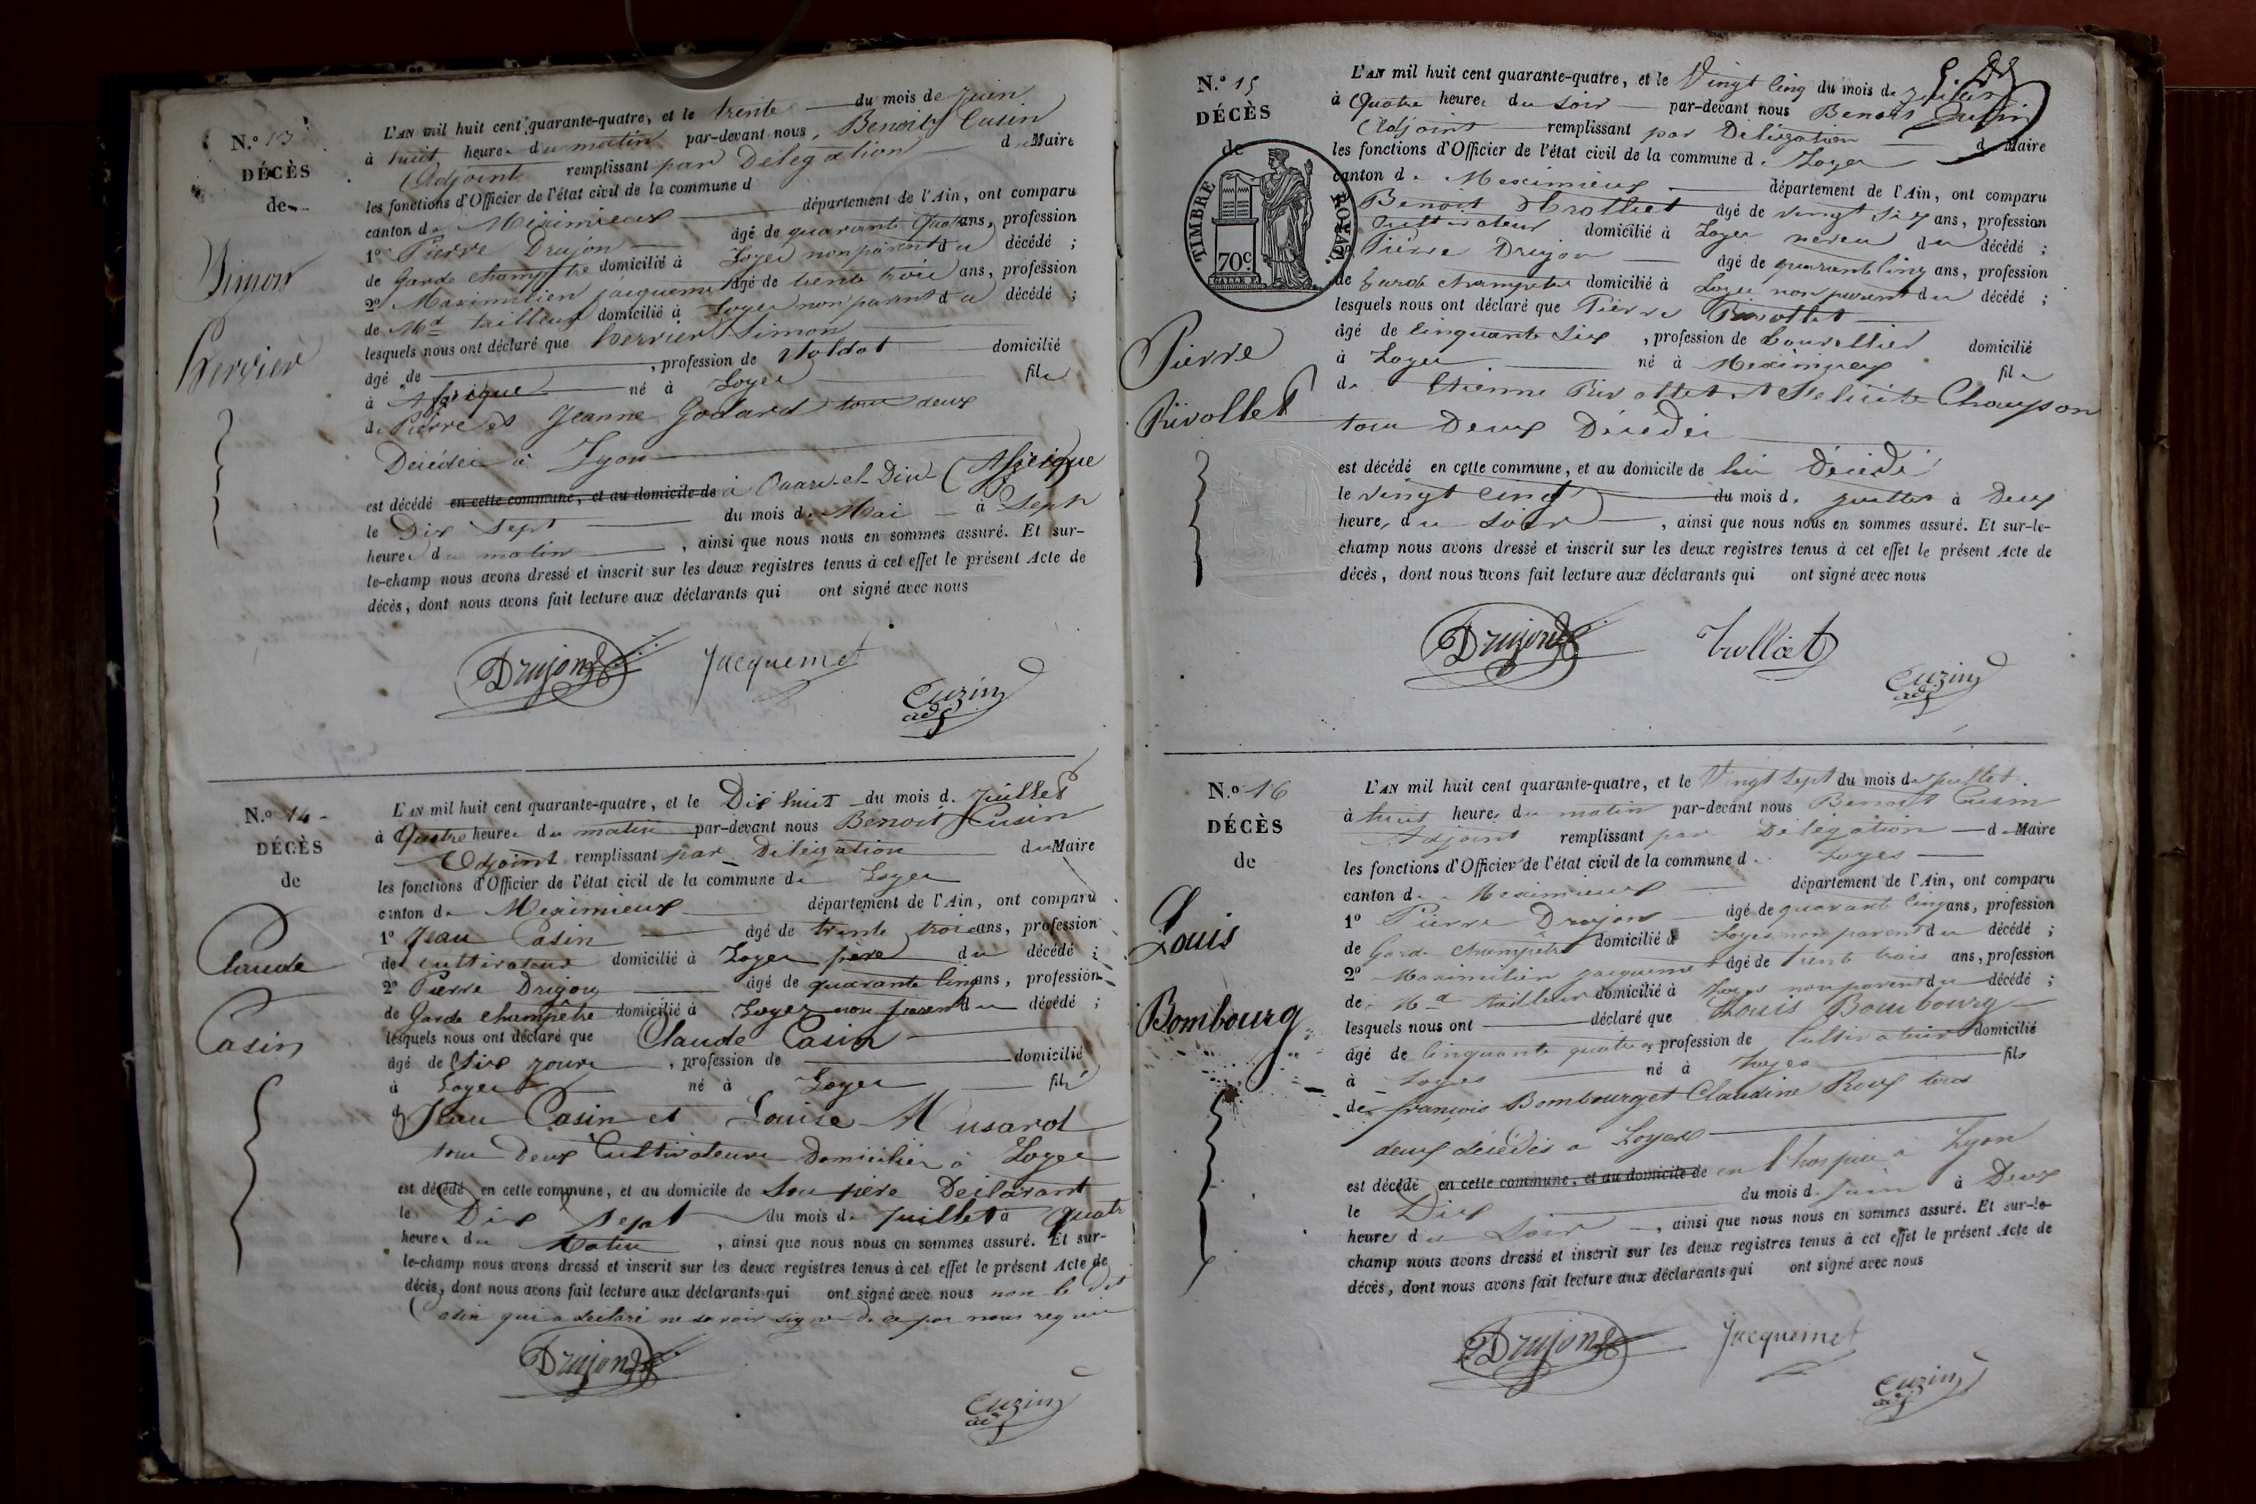 N.º 13
DÉCÈS
de
Simon
Perrier
L'AN mil huit cent quarante-quatre, et le trente du mois de juin
à huit heures du matin par-devant nous, Benoit Cusin
Adjoint remplissant par Délégation du Maire
les fonctions d'Officier de l'état civil de la commune d
canton de Méximieux département de l'Ain, ont comparu
1º Pierre Drujon âgé de quarante ans, profession
de Garde champêtre domicilié à Loyes non parent du décédé ;
2º Maximilien jacquemet âgé de trente trois ans, profession
de Md tailleur domicilié à Loyes non parent du décédé ;
lesquels nous ont déclaré que Perrier Simon
âgé de , profession de Soldat domicilié
à Affrique né à Loyes fils
de Pierre et Jeanne Godard tous deux
Décédés à Lyon
est décédé en cette commune, et au domicile de à (Affrique)
le Dix Sept du mois de Mai à Sept
heures du matin , ainsi que nous nous en sommes assuré. Et sur-
le-champ nous avons dressé et inscrit sur les deux registres tenus à cet effet le présent Acte de
décès, dont nous avons fait lecture aux déclarants qui ont signé avec nous
Drujon Jacquemet
Cuzin
adj
N.º 14
DÉCÈS
de
Claude
Casin
L'AN mil huit cent quarante-quatre, et le Dix huit du mois de Juillet
à Quatre heures du matin par-devant nous Benoit Cusin
Adjoint remplissant par Délégation du Maire
les fonctions d'Officier de l'état civil de la commune de Loyes
canton de Meximieux département de l'Ain, ont comparu
1º Jean Casin âgé de trente trois ans, profession
de cultivateur domicilié à Loyes père du décédé ;
2º Pierre Drujon âgé de quarante cinq ans, profession
de Garde champêtre domicilié à Loyes non parent du décédé ;
lesquels nous ont déclaré que Claude Casin
âgé de Six jours , profession de domicilié
à Loyes né à Loyes fils
de Jean Casin et Louise Musard
tous deux Cultivateurs domiciliés à Loyes
est décédé en cette commune, et au domicile de Son père Déclarant
le Dix Sept du mois de Juillet à quatre
heures du Matin , ainsi que nous nous en sommes assuré. Et sur-
le-champ nous avons dressé et inscrit sur les deux registres tenus à cet effet le présent Acte de
décès, dont nous avons fait lecture aux déclarants qui ont signé avec nous non le dit
Casin qui a déclaré ne savoir signer de ce par nous requis
Drujon
Cuzin
adj
N.º 15
DÉCÈS
de
TIMBRE ROYAL.
70c.
Pierre
Rivollet
L'AN mil huit cent quarante-quatre, et le Vingt Cinq du mois de juillet
à Quatre heures du Soir par-devant nous Benoit Cusin
Adjoint remplissant par Délégation du Maire
les fonctions d'Officier de l'état civil de la commune de Loyes
canton de Meximieux département de l'Ain, ont comparu
Benoit Trolliet âgé de vingt Six ans, profession
Cultivateur domicilié à Loyes neveu du décédé ;
Pierre Drujon âgé de quarante cinq ans, profession
de Garde champêtre domicilié à Loyes non parent du décédé ;
lesquels nous ont déclaré que Pierre Rivollet
âgé de Cinquante Six , profession de Bourellier domicilié
à Loyes né à Meximieux fils
de Etienne Rivollet et Felicité Chaupon
tous Deux Décédés
est décédé en cette commune, et au domicile de lui Décédé
le vingt Cinq du mois de juillet à Deux
heures du Soir , ainsi que nous nous en sommes assuré. Et sur-le-
champ nous avons dressé et inscrit sur les deux registres tenus à cet effet le présent Acte de
décès, dont nous avons fait lecture aux déclarants qui ont signé avec nous
Drujon Trolliet
Cuzin
adj
N.º 16
DÉCÈS
de
Louis
Bombourg
L'AN mil huit cent quarante-quatre, et le Vingt Sept du mois de juillet
à huit heures du matin par-devant nous Benoit Cusin
Adjoint remplissant par Délégation du Maire
les fonctions d'Officier de l'état civil de la commune de Loyes
canton de Meximieux département de l'Ain, ont comparu
1º Pierre Drujon âgé de quarante cinq ans, profession
de Garde champêtre domicilié à Loyes non parent du décédé ;
2º Maximilien jacquemet âgé de trente trois ans, profession
de Md tailleur domicilié à Loyes non parent du décédé ;
lesquels nous ont déclaré que Louis Bombourg
âgé de Cinquante quatre , profession de Cultivateur domicilié
à Loyes né à Loyes fils
de françois Bombourg et Claudine Roux tous
deux décédés à Loyes
est décédé en cette commune, et au domicile de en l'hospice à Lyon
le Dix du mois de Juin à Deux
heures du Soir , ainsi que nous nous en sommes assuré. Et sur-le-
champ nous avons dressé et inscrit sur les deux registres tenus à cet effet le présent Acte de
décès, dont nous avons fait lecture aux déclarants qui ont signé avec nous
Drujon Jacquemet
Cuzin
adj